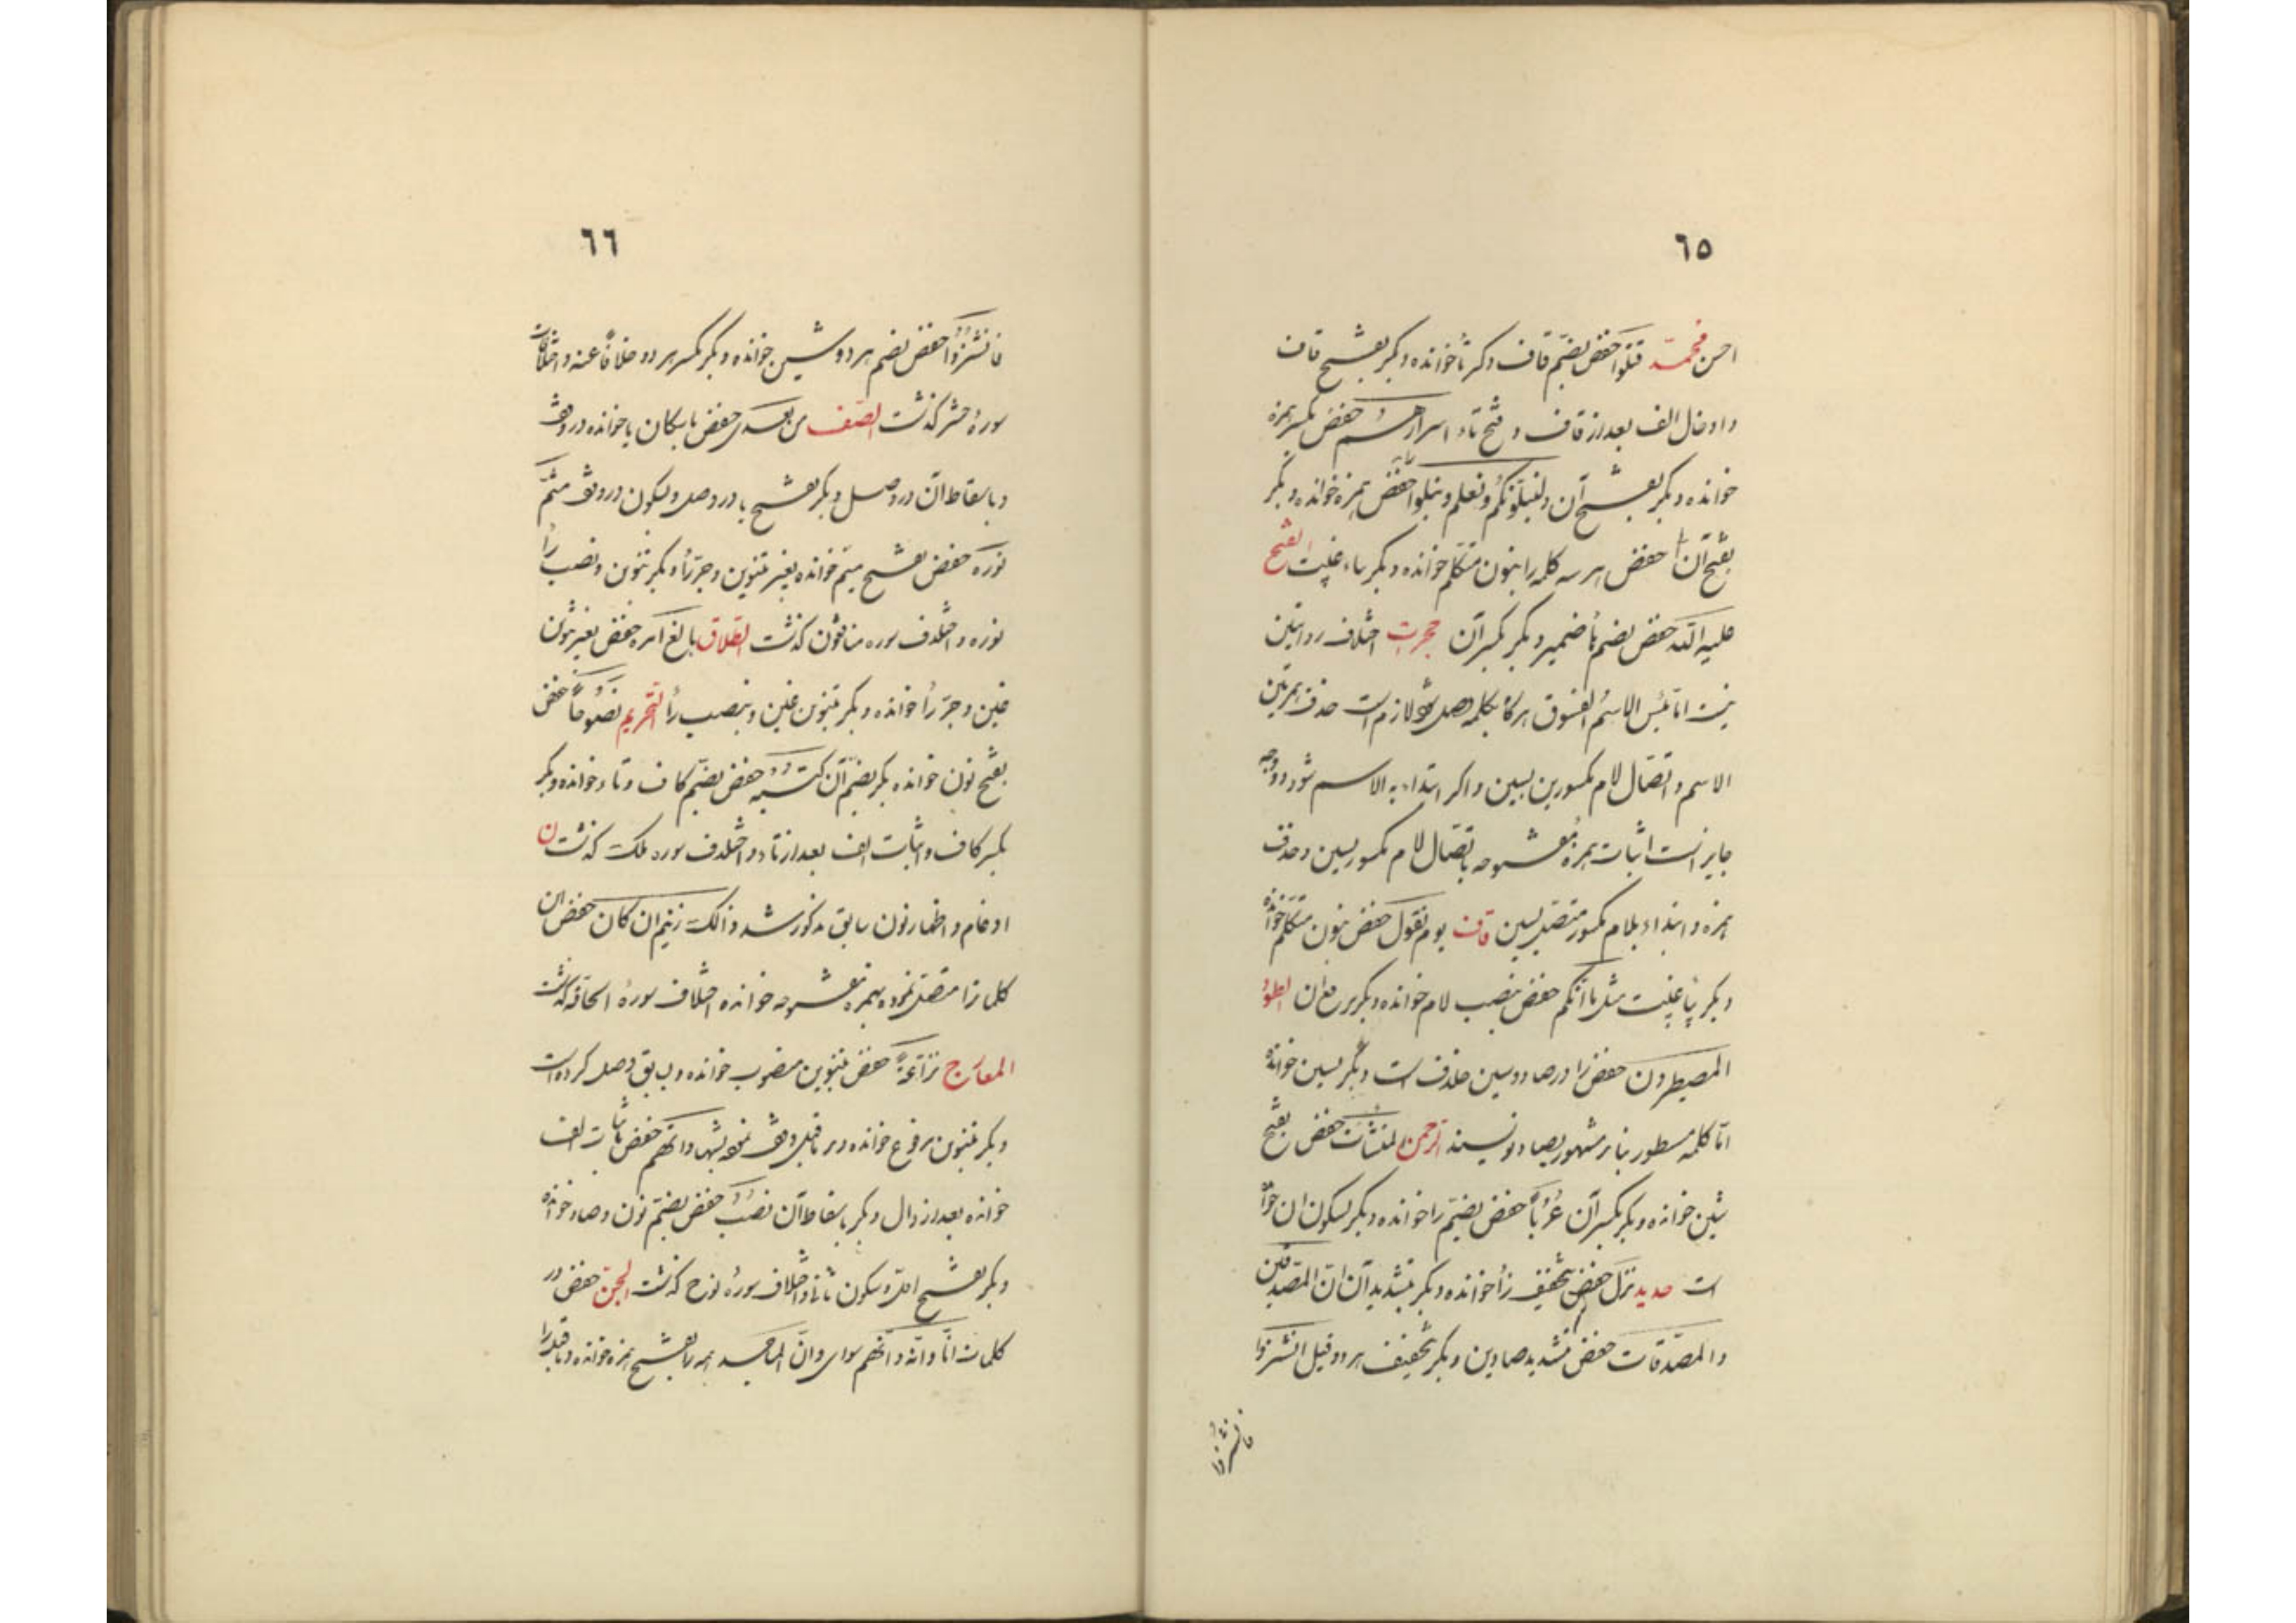 ٦٥
احسن محمّد قتلوا حفص بضمّ قاف و کر تا خوانده و بکر بفتح قاف
و ادخال الف بعد از قاف و فتح تاء اسرارهم حفص بکسر همزه
خوانده و بکر بفتح آن و لنبلونّکم و نعلم و نبلوا حفص همزه خوانده و بکر
بفتح آن حفص هر سه کلمه را بنون متکلم خوانده و بکر بیاء غیبت الفتح
علیه اللّه حفص بضم هأ ضمیر و بکر بکسر آن حجرت اختلاف روایتین
نیست امّا بئس الاسمُ الفسوق هرگاه بکلمه وصل شود لازم است حذف همزتین
الاسم و اتّصال لام مکسور بسین و اکر ابتداء به الاسم شود دو وجه
جایز است اثبات همزهٔ مفتوحه باتّصال لام مکسور بسین و حذف
همزه و ابتداء بلام مکسور متصل بسین قاف یوم نقول حفص بنون متکلم خوانده
و بکر بیأ غیبت مثل ما انّکم حفص بنصب لام خوانده و بکر برفع آن الطور
المصیطرون حفص را در صاد و سین خلاف است و بکر بسین خوانده
امّا کلمه مسطور بنابر مشهور بصاد نویسند الرّحمن المنشأت حفص بفتح
شین خوانده و بکر بکسر آن عُرُباً حفص بضمّ را خوانده و بکر بسکون ان خوانده
است حدید نزل حفص بتخفیف زأ خوانده و بکر بتشدید آن انّ المصّدقین
و المصّدقات حفص بتشدید صادین و بکر بتخفیف هر دو قیل انشزوا
فانشزوا
٦٦
فانشُزُوا حفص بضم هر دو شین خوانده و بکر بکسر هر دو خلافاً عنه و اختلافات
سورهٔ حشر کذشت الصّف من بعدی حفص باسکان یا خوانده در وقف
و باسقاط آن در وصل و بکر بفتح یا در وصل و بسکون در وقف متمّ
نوره حفص بفتح میم خوانده بغیر تنوین و جرّ رأ و بکر بتنوین و نصب رأ
نوره و اختلاف سوره منافقون کذشت الطّلاق بالغ امره حفص بغیر تنوین
غین و جرّ رأ خوانده و بکر بتنوین غین و بنصب رأ التّحریم نصوحاً حفص
بفتح نون خوانده بکر بضمّ آن کتبه حفص بضمّ کاف و تاء خوانده و بکر
بکسر کاف و اثبات الف بعد از تاء و اختلاف سوره ملک کذشت ن
ادغام و اظهار نون سابق مذکور شد و ذالک زنیم ان کان حفص ان
کلمه را متصل نموده بهمزه مفتوحه خوانده اختلاف سورهٔ الحاقه کذشت
المعارج نزّاعةً حفص بتنوین منصوب خوانده و بسابق وصل کرده است
و بکر بتنوین مرفوع خوانده و بر ماقبل وقف نموده بشهاداتهم حفص باثبات الف
خوانده بعد از دال و بکر باسقاط آن نصُبٍ حفص بضمّ نون و صاد خوانده
و بکر بفتح اوّل و سکون ثانی و اختلاف سورهٔ نوح کذشت الجنّ حفص در
کلمات انّا و انّه و انّهم سوای و انّ المساجد همه را بفتح همزه خوانده و ماقبل را